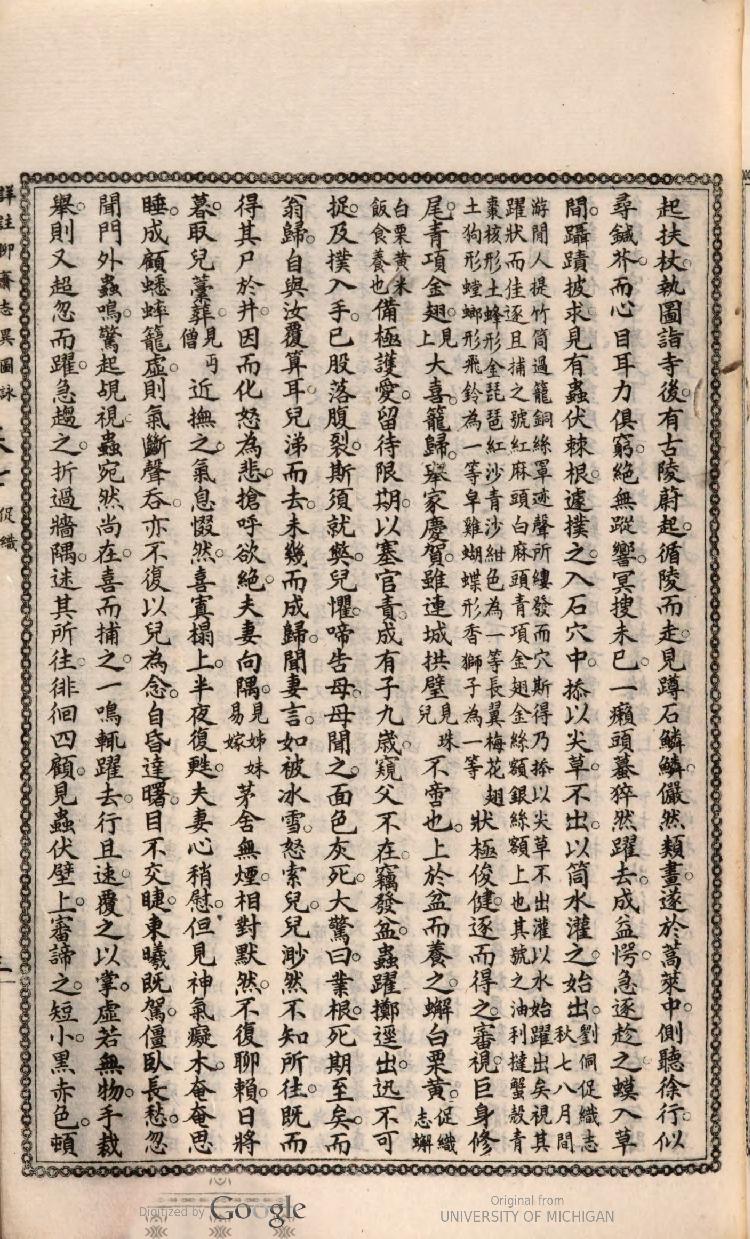 起扶杖執圖詣寺後有古陵蔚起循陵而走見蹲石鱗鱗儼然類畫遂於蒿萊中側聽徐行似
尋鍼芥而心目耳力俱窮絕無蹤響冥搜未已一癩頭蟇猝然躍去成益愕急逐趁之蟆入草
間躡蹟披求見有蟲伏棘根遽撲之入石穴中掭以尖草不出以筒水灌之始出劉侗促織志秋七八月間
游閒人提竹筒過籠銅絲罩迹聲所縷發而穴斯得乃掭以尖草不出灌以水始躍出矣視其
躍狀而佳逐且捕之號紅麻頭白麻頭青項金翅金絲額銀絲額上也其號之油利撻蟹殼青
棗核形土蜂形金琵琶紅沙青沙紺色為一等長翼梅花翅
土狗形螳螂形飛鈴為一等皁雞蝴蝶形香獅子為一等
狀極俊健逐而得之審視巨身修
尾青項金翅見上大喜籠歸舉家慶賀雖連城拱璧見珠兒不啻也上於盆而養之蠏白栗黃促織志蠏
白栗黃米飯食養也備極護愛留待限期以塞官責成有子九歲窺父不在竊發盆蟲躍擲逕出迅不可
捉及撲入手已股落腹裂斯須就斃兒懼啼告母母聞之面色灰死大驚曰業根死期至矣而
翁歸自與汝覆算耳兒涕而去未幾而成歸聞妻言如被冰雪怒索兒兒渺然不知所往既而
得其尸於井因而化怒為悲搶呼欲絕夫妻向隅見姊妹易嫁茅舍無煙相對默然不復聊賴日將
暮取兒藁葬見丐僧近撫之氣息惙然喜寘榻上半夜復甦夫妻心稍慰但見神氣癡木奄奄思
睡成顧蟋蟀籠虛則氣斷聲吞亦不復以兒為念自昏達曙目不交睫東曦既駕僵臥長愁忽
聞門外蟲鳴驚起覘視蟲宛然尚在喜而捕之一鳴輒躍去行且速覆之以掌虛若無物手裁
舉則又超忽而躍急趨之折過牆隅迷其所往徘徊四顧見蟲伏壁上審諦之短小黑赤色頓
詳註聊齋志異圖詠
促織
Digitized by Google
Original from
UNIVERSITY OF MICHIGAN